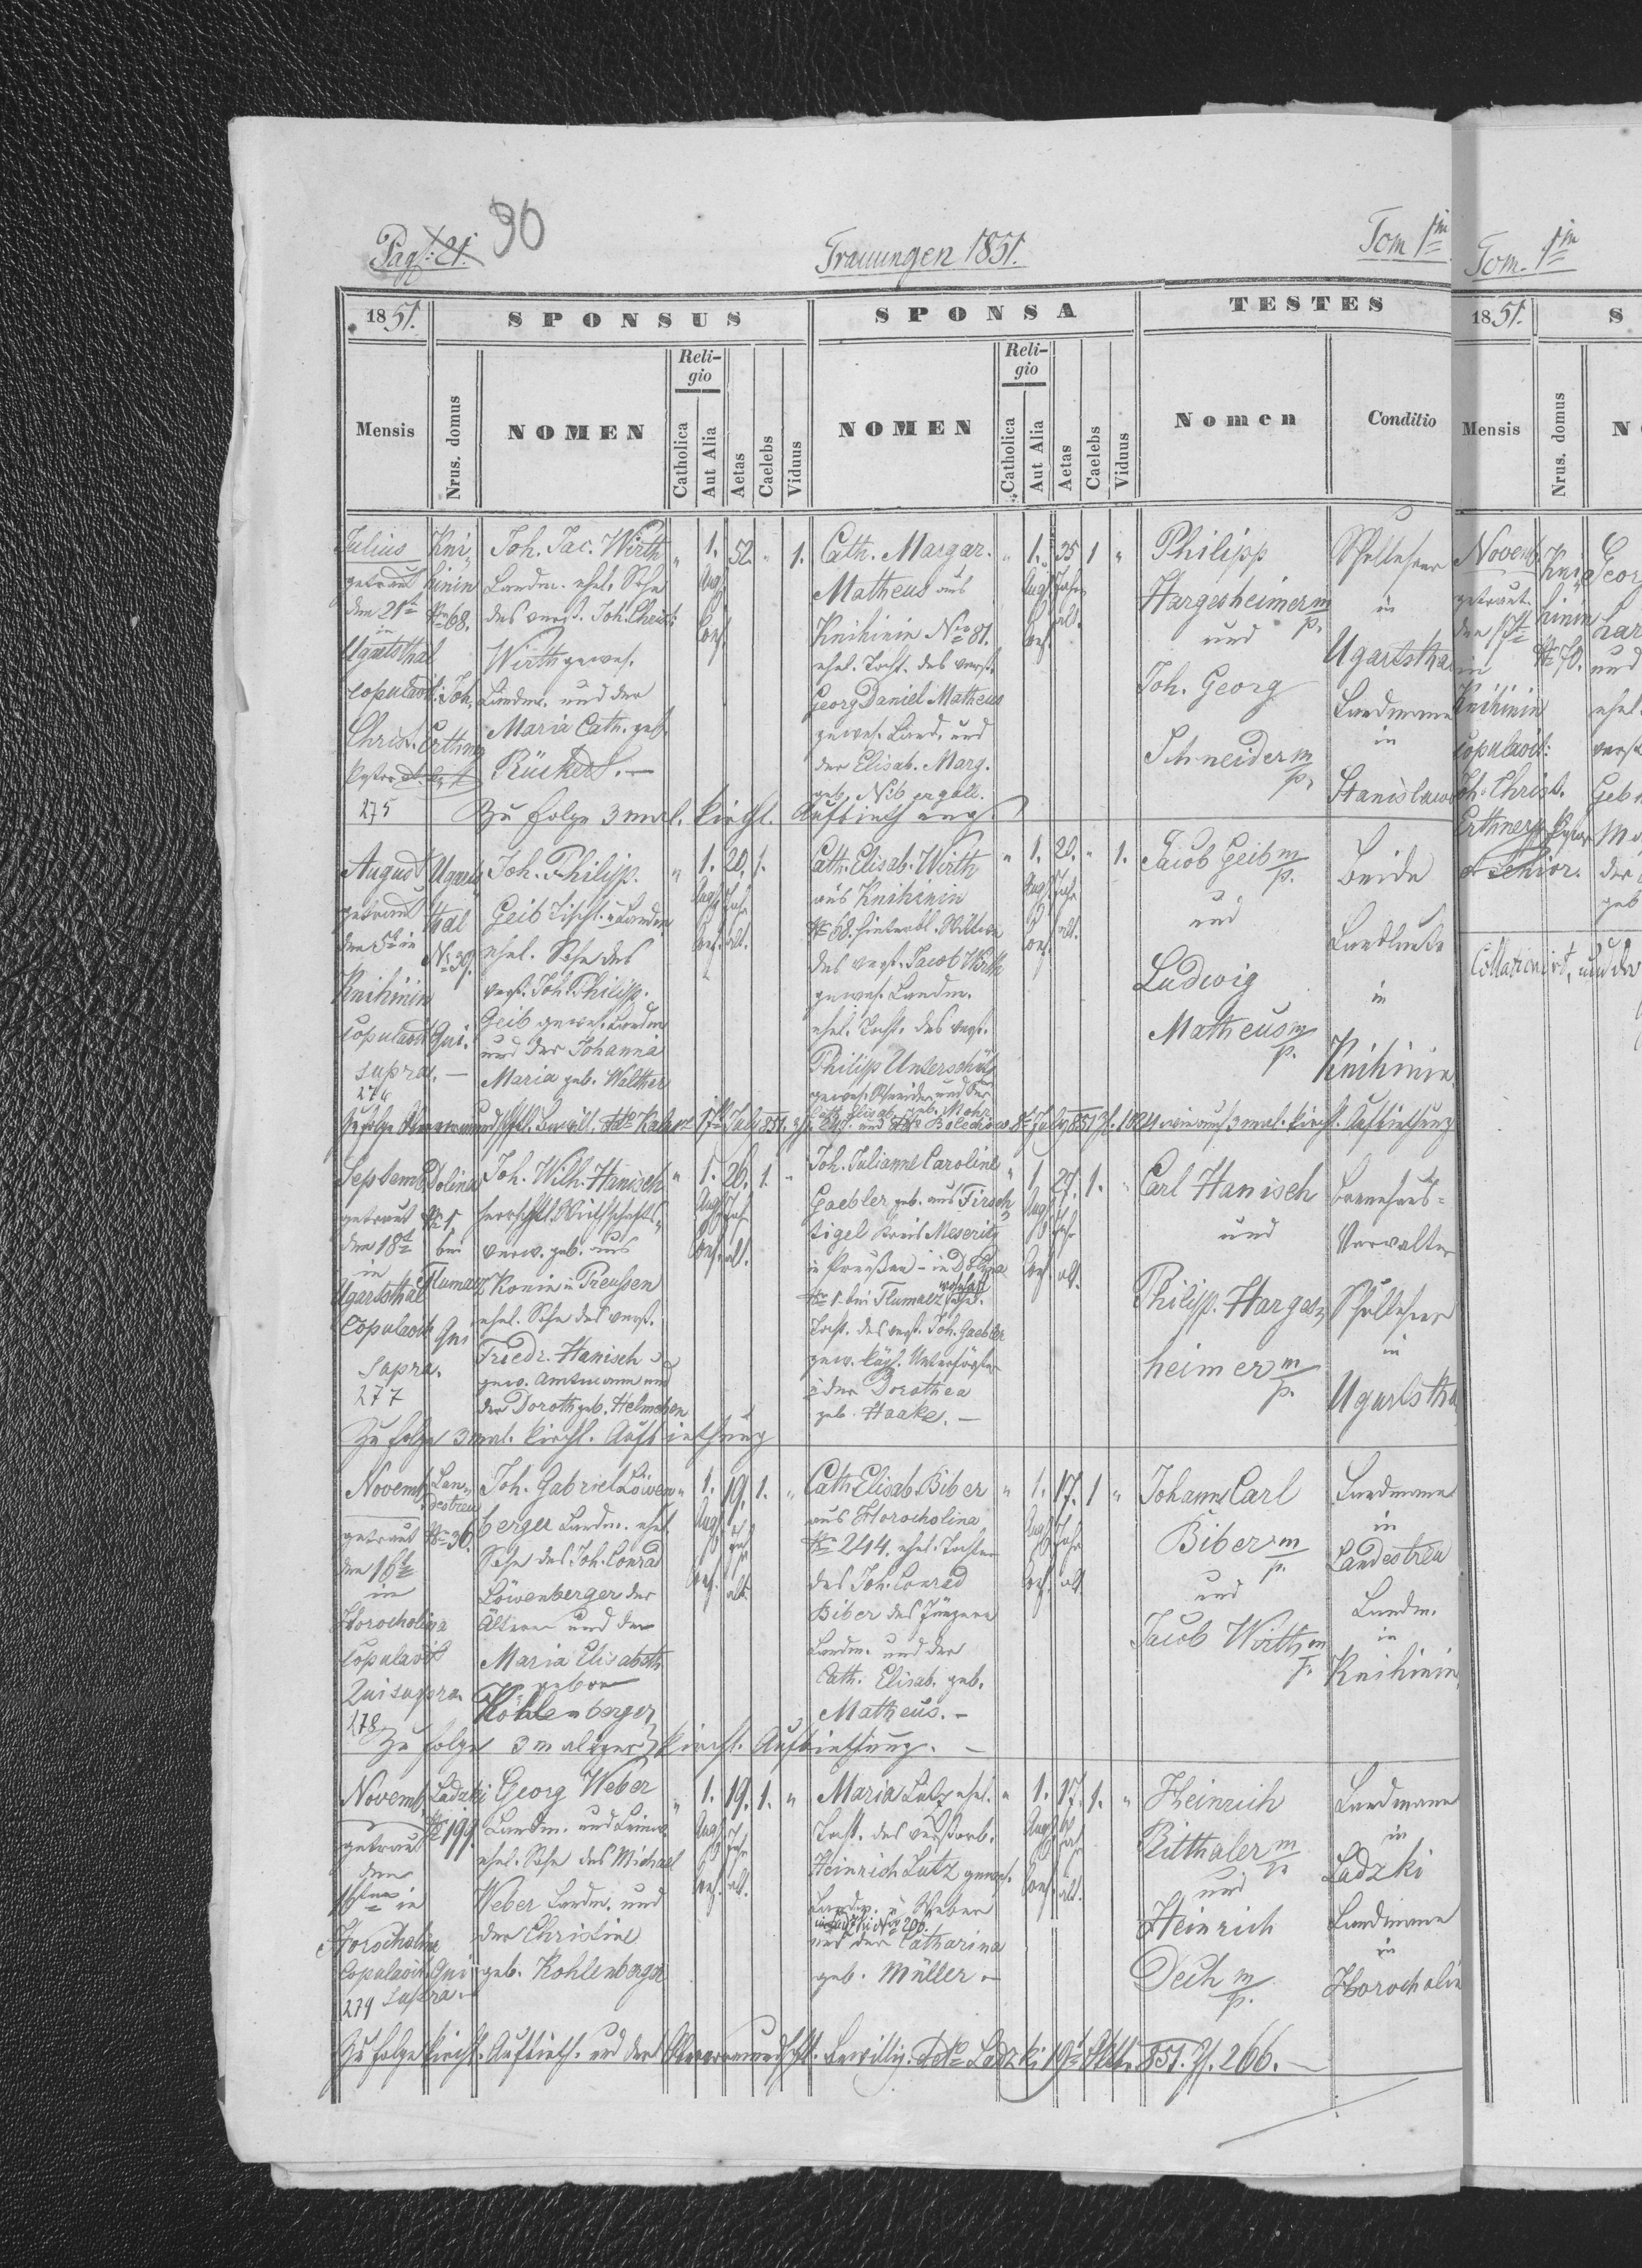 Pag: 21. 30
Trauungen 1851.
Tom 1m
1851.
SPONSUS
SPONSA
TESTES
Mensis
Nrus. domus
NOMEN
Religio
Catholica
Aut Alia
Aetas
Caelebs
Viduus
NOMEN
Religio
Catholica
Aut Alia
Aetas
Caelebs
Viduus
Nomen
Conditio
Julius
getraut
den 21t
in
Ugartsthal
copulavit: Joh.
Christ. Erthner
Pastor
275
Kni-
hinin
No 68.
Joh. Jac. Wirth
Landm. ehel. Sohn
des verst. Joh. Christ:
Wirth gewes.
Landm. und der
Maria Cath. geb.
Rückert. —
" 1. 52. " 1.
Augs.
Conf.
Cath. Margar.
Matheus aus
Knihinin Nro 81.
ehel. Tocht. des verst.
Georg Daniel Matheus
gewes. Land. und
der Elisab. Marg.
" 1. 35 1 "
Augs. Jahr
Conf. alt.
Philipp
Hargesheimer m/p.
und
Joh. Georg
Schneider m/p.
Schullehrer
in
Ugartsthal
Landmann
in
Stanislawo
Zu folge 3 mal. kirchl. Aufbieth ung.
August
getraut
den 5t in
Knihinin
Copulavit Qui.
supra. —
Ugarts
thal
No 39.
Joh. Philipp.
Geib Tischl. u Landm
ehel. Sohn des
verst. Joh. Philipp.
Geib gewes. Landm
und der Johanna
Maria geb. Walther
" 1. 20. 1.
Augs. Jahr
Conf. alt.
Cath. Elisab. Wirth
aus Knihinin
No 68. hinterbl. Wittwe
des verst. Jacob Wirth
gewes. Landm.
ehel. Tocht. des verst.
Philipp Unterschütz
gewes. Schneider und der
Cath. Elisab. geb. Mohr.
" 1. 20. " 1.
Augs. Jahr
Conf. alt.
Jacob Geib m/p.
und
Ludwig
Matheus m/p.
Beide
Landleute
in
Knihinin
Septemb.
getraut
den 18t
in
Ugartsthal
Copulavit Qui
supra.
277
Dolina
No 1
bei
Tlumacz
Joh. Wilh. Hanisch
herrschftl. Wirthschafts-
verw. geb. aus
Konin in Preussen
ehel. Sohn des verst.
Friedr. Hanisch
gew. Amtmann und
der Doroth. geb. Helmchen
" 1. 26. 1. "
Augs. Jahr
Conf. alt.
Joh. Julianne Caroline
Gaebler geb. aus Tirsch-
tigel Kreis Meseritz
in Preußen – in Dolina
No 1 – bei Tlumacz wohnhaft ehel.
Tocht. des verst. Joh. Gaebler
gew. königl. Unterförster
u der Dorothea
geb. Haake. —
" 1. 27. 1. "
Augs. Jahr
Conf. alt.
Carl Hanisch
und
Philipp. Harges-
heimer m/p.
Brennhaus-
Verwalter
Schullehrer
in
Ugartstha
Zu folge 3 mal. kirchl. Aufbiethung
Novemb.
getraut
den 16t
in
Horocholina
Copulavit
Qui supra.
278
Lan-
destreu
No 36.
Joh. Gabriel Löwen-
berger Landm. ehel.
Sohn des Joh. Conrad
Löwenberger der
Ältere und der
Maria Elisabeth
geborn
Köhlenberger
" 1. 19. 1. "
Augs. Jahr
Conf. alt.
Cath Elisab. Biber
aus Horocholina
No 244. ehel. Tochter
des Joh. Conrad
Biber des Jüngern
Landm. und der
Cath. Elisab. geb.
Matheus. –
" 1. 17. 1 "
Augs. Jahr
Conf. alt
Johann Carl
Biber m/p.
und
Jacob Wirth m/p.
Landmann
in
Landestreu
Landm.
in
Knihinin
Zu folge 3 maliger kirchl. Aufbiethung. –
Novemb.
getraut
den
in
Horocholina
Copulavit Qui
279 supra.
Ladzki
No 199
Georg Weber
ehel. Sohn des Michael
Weber Landm. und
der Christine
geb. Kohlenberger
" 1. 19. 1. "
Augs. Jahr
Conf. alt.
Maria Lutz ehel.
Tocht. des verstorb.
Heinrich Lutz gewes.
Landm. u Weber
in Ladzki No 206.
und der Catharina
geb. Müller –
" 1. 17. 1. "
Augs. Jahr
Conf. alt.
Heinrich
Ritthaler m/p
und
Heinrich
Dech m/p.
Landmann
in
Ladzki
Landmann
in
Horocholin
Zu folge kirchl. Aufbieth. und der Obervormundschftl. Bewillig. ddo Ladzki 19t 851. Z. 266. —
Tom. 1m
1851.
S
Mensis
Nrus. domus
N
Novemb
getraut
in
Knihinin
copulavit:
Joh. Christ.
Erthner Pastor
et Senior.
Kni-
hinin
No 70.
Geor
und
ehel.
verst
Geb
der
geb
Collationirt, und der